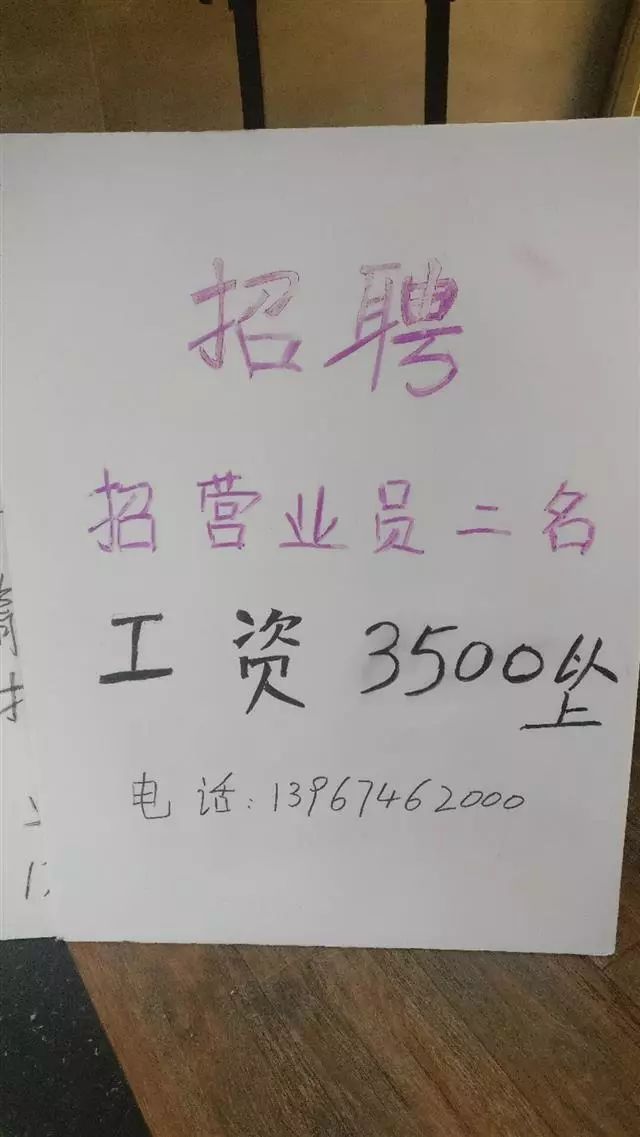 招聘
招营业员二名
工资3500以上
电话:13967462000